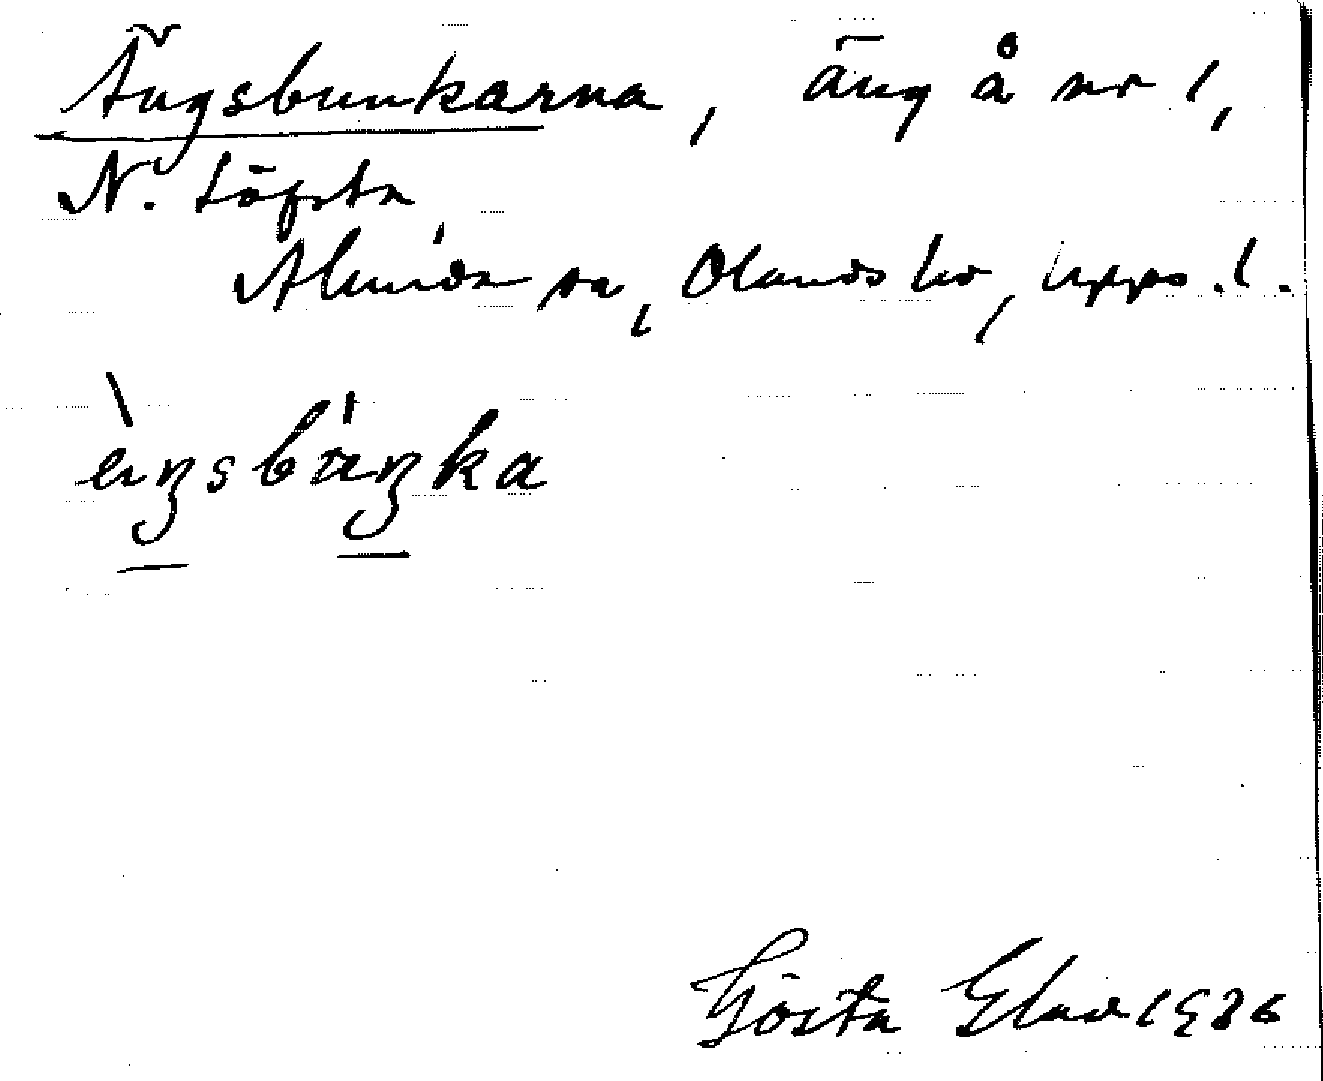 Ängsbunkarna, äng å nr 1,
N. Löfsta
Almunga sn, Olands hd, Upps. l.
èŋsbúŋka
Gösta Elad 1936